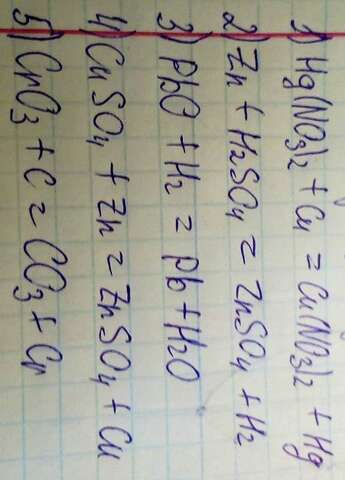 1) Hg(NO3)2 + Cu = Cu(NO3)2 + Hg
2) Zn + H2SO4 = ZnSO4 + H2
3) PbO + H2 = Pb + H2O
4) CuSO4 + Zn = ZnSO4 + Cu
5) CrO3 + C = CO3 + Cr